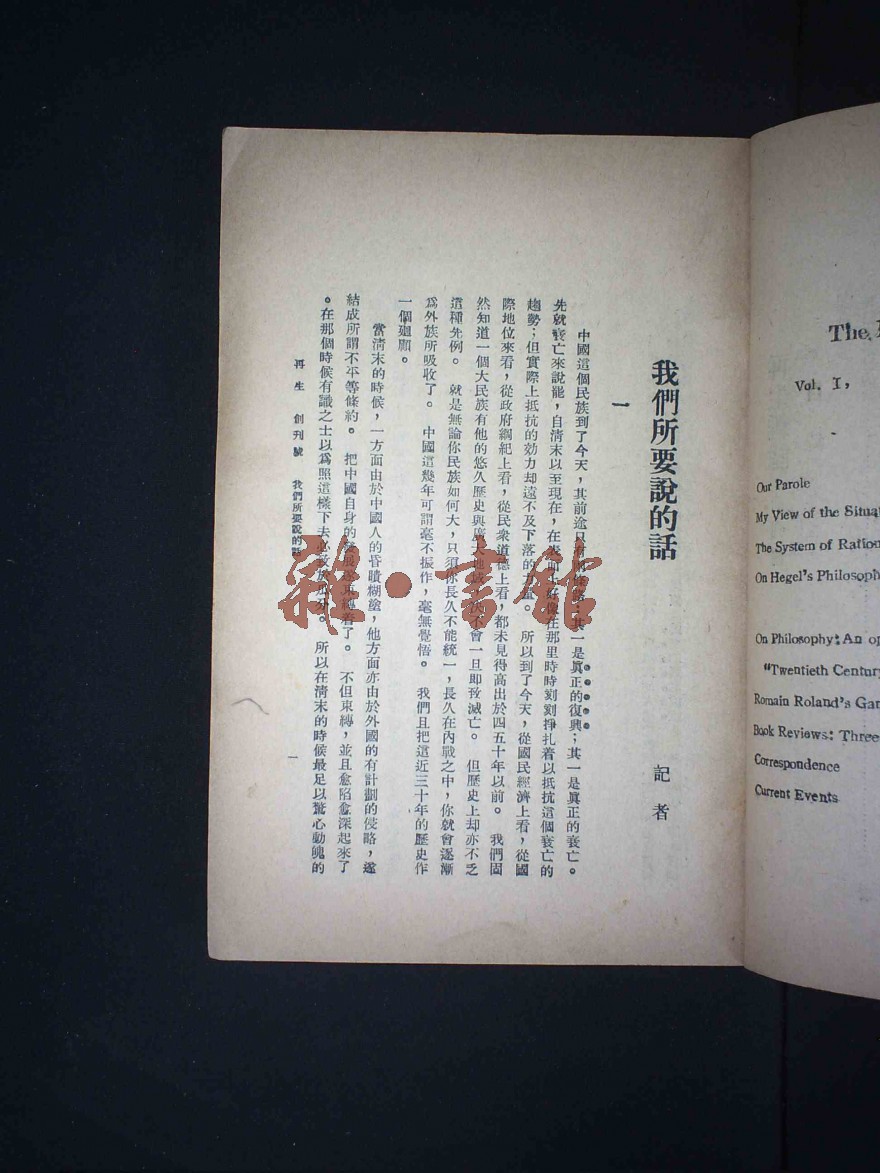 我們所要說的話
記者
一
中國這個民族到了今天，其前途只有兩條路：其一是眞正的復興；其一是眞正的衰亡。
先就衰亡來說罷，自淸末以至現在，在表面上好像在那里時時刻刻掙扎着以抵抗這個衰亡的
趨勢；但實際上抵抗的効力却遠不及下落的力量。 所以到了今天，從國民經濟上看，從國
際地位來看，從政府綱紀上看，從民衆道德上看，都未見得高出於四五十年以前。 我們固
然知道一個大民族有他的悠久歷史與廣大地域，決不會一旦即致滅亡。 但歷史上却亦不乏
這種先例。 就是無論你民族如何大，只須你長久不能統一，長久在內戰之中，你就會逐漸
爲外族所吸收了。 中國這幾年可謂毫不振作，毫無覺悟。 我們且把這近三十年的歷史作
一個廻顧。
當淸末的時候，一方面由於中國人的昏聵糊塗，他方面亦由於外國的有計劃的侵略，遂
結成所謂不平等條約。 把中國自身的發展遂束縛着了。 不但束縛，並且愈陷愈深起來了
。在那個時候有識之士以爲照這樣下去必致於瓜分。 所以在淸末的時候最足以驚心動魄的
再生 創刊號 我們所要說的話
一
The
Vol. I,
Our Parole
My View of the
The System of
On Hegel's
On Philosophy: An
"Twentieth
Romain Roland's
Book Reviews: Three
Correspondence
Current Events
雜·書館